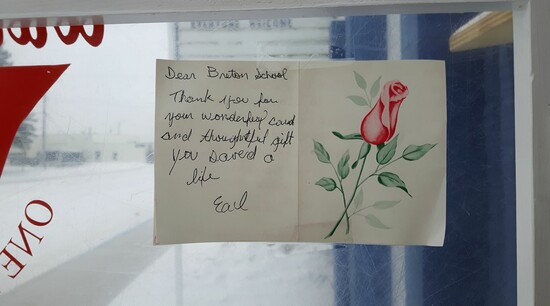 Dear Breton School
Thank you for
your wonderful card
and thoughtful gift
you saved a
life
Earl
ONE